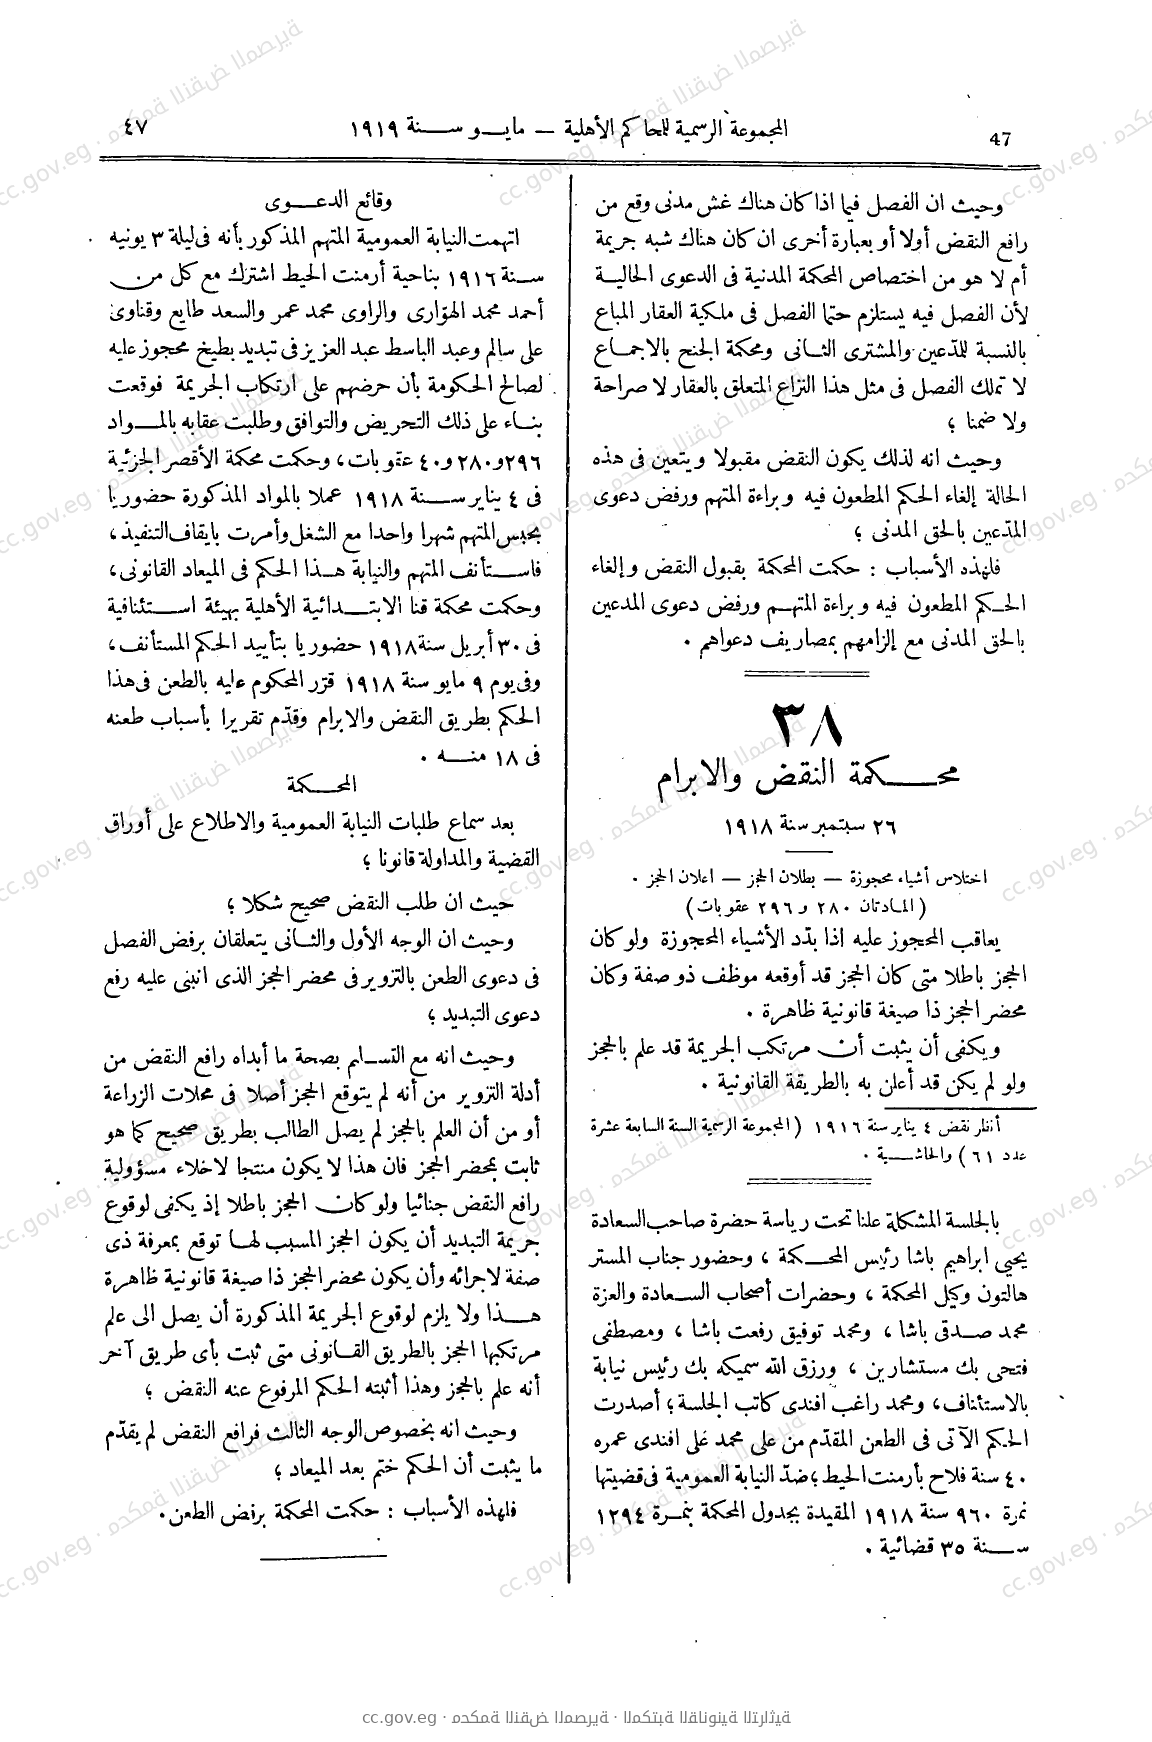 47
المجموعة الرسمية للمحاكم الأهلية — مايو سنة ١٩١٩
٤٧
وحيث ان الفصل فيما اذا كان هناك غش مدنى وقع من
رافع النقض أولا أو بعبارة أخرى ان كان هناك شبه جريمة
أم لا هو من اختصاص المحكمة المدنية فى الدعوى الحالية
لأن الفصل فيه يستلزم حتما الفصل فى ملكية العقار المباع
بالنسبة للمدّعين والمشترى الثانى ومحكمة الجنح بالاجماع
لا تملك الفصل فى مثل هذا النزاع المتعلق بالعقار لا صراحة
ولا ضمنا ؛
وحيث انه لذلك يكون النقض مقبولا ويتعين فى هذه
الحالة إلغاء الحكم المطعون فيه وبراءة المتهم ورفض دعوى
المدّعين بالحق المدنى ؛
فلهذه الأسباب : حكمت المحكمة بقبول النقض وإلغاء
الحكم المطعون فيه وبراءة المتهم ورفض دعوى المدعين
بالحق المدنى مع إلزامهم بمصاريف دعواهم .
٣٨
محكمة النقض والابرام
٢٦ سبتمبر سنة ١٩١٨
اختلاس أشياء محجوزة — بطلان الحجز — اعلان الحجز .
(المادتان ٢٨٠ و ٢٩٦ عقوبات)
يعاقب المحجوز عليه اذا بدّد الأشياء المحجوزة ولو كان
الحجز باطلا متى كان الحجز قد أوقعه موظف ذو صفة وكان
محضر الحجز ذا صيغة قانونية ظاهرة .
ويكفى أن يثبت أن مرتكب الجريمة قد علم بالحجز
ولو لم يكن قد أعلن به بالطريقة القانونية .
أنظر نقض ٤ يناير سنة ١٩١٦ (المجموعة الرسمية السنة السابعة عشرة
عدد ٦١) والحاشية .
بالجلسة المشكلة علنا تحت رياسة حضرة صاحب السعادة
يحيى ابراهيم باشا رئيس المحكمة ، وحضور جناب المستر
هالتون وكيل المحكمة ، وحضرات أصحاب السعادة والعزة
محمد صدقى باشا ، ومحمد توفيق رفعت باشا ، ومصطفى
فتحى بك مستشارين ، ورزق الله سميكه بك رئيس نيابة
بالاستئناف، ومحمد راغب افندى كاتب الجلسة ؛ أصدرت
الحكم الآتى فى الطعن المقدّم من على محمد على افندى عمره
٤٠ سنة فلاح بأرمنت الحيط ؛ ضدّ النيابة العمومية فى قضيتها
نمرة ٩٦٠ سنة ١٩١٨ المقيدة بجدول المحكمة بنمرة ١٢٩٤
سنة ٣٥ قضائية .
وقائع الدعوى
اتهمت النيابة العمومية المتهم المذكور بأنه فى ليلة ٣ يونيه
سنة ١٩١٦ بناحية أرمنت الحيط اشترك مع كل من
أحمد محمد الهوّارى والراوى محمد عمر والسعد طايع وقناوى
على سالم وعبد الباسط عبد العزيز فى تبديد بطيخ محجوز عليه
لصالح الحكومة بأن حرضهم على ارتكاب الجريمة فوقعت
بناء على ذلك التحريض والتوافق وطلبت عقابه بالمواد
٢٩٦و٢٨٠و٤٠ عقوبات، وحكمت محكمة الأقصر الجزئية
فى ٤ يناير سنة ١٩١٨ عملا بالمواد المذكورة حضوريا
بحبس المتهم شهرا واحدا مع الشغل وأمرت بايقاف التنفيذ ،
فاستأنف المتهم والنيابة هذا الحكم فى الميعاد القانونى ،
وحكمت محكمة قنا الابتدائية الأهلية بهيئة استئنافية
فى ٣٠ أبريل سنة ١٩١٨ حضوريا بتأييد الحكم المستأنف ،
وفى يوم ٩ مايو سنة ١٩١٨ قرّر المحكوم عليه بالطعن فى هذا
الحكم بطريق النقض والابرام وقدّم تقريرا بأسباب طعنه
فى ١٨ منه .
المحكمة
بعد سماع طلبات النيابة العمومية والاطلاع على أوراق
القضية والمداولة قانونا ؛
حيث ان طلب النقض صحيح شكلا ؛
وحيث ان الوجه الأول والثانى يتعلقان برفض الفصل
فى دعوى الطعن بالتزوير فى محضر الحجز الذى انبنى عليه رفع
دعوى التبديد ؛
وحيث انه مع التسليم بصحة ما أبداه رافع النقض من
أدلة التزوير من أنه لم يتوقع الحجز أصلا فى محلات الزراعة
أو من أن العلم بالحجز لم يصل الطالب بطريق صحيح كما هو
ثابت بمحضر الحجز فان هذا لا يكون منتجا لاخلاء مسؤولية
رافع النقض جنائيا ولو كان الحجز باطلا إذ يكفى لوقوع
جريمة التبديد أن يكون الحجز المسبب لها توقع بمعرفة ذى
صفة لاجرائه وأن يكون محضر الحجز ذا صيغة قانونية ظاهرة
هذا ولا يلزم لوقوع الجريمة المذكورة أن يصل الى علم
مرتكبها الحجز بالطريق القانونى متى ثبت بأى طريق آخر
أنه علم بالحجز وهذا أثبته الحكم المرفوع عنه النقض ؛
وحيث انه بخصوص الوجه الثالث فرافع النقض لم يقدّم
ما يثبت أن الحكم ختم بعد الميعاد ؛
فلهذه الأسباب : حكمت المحكمة برفض الطعن .
cc.gov.eg · محكمة النقض المصرية · المكتبة القانونية التراثية